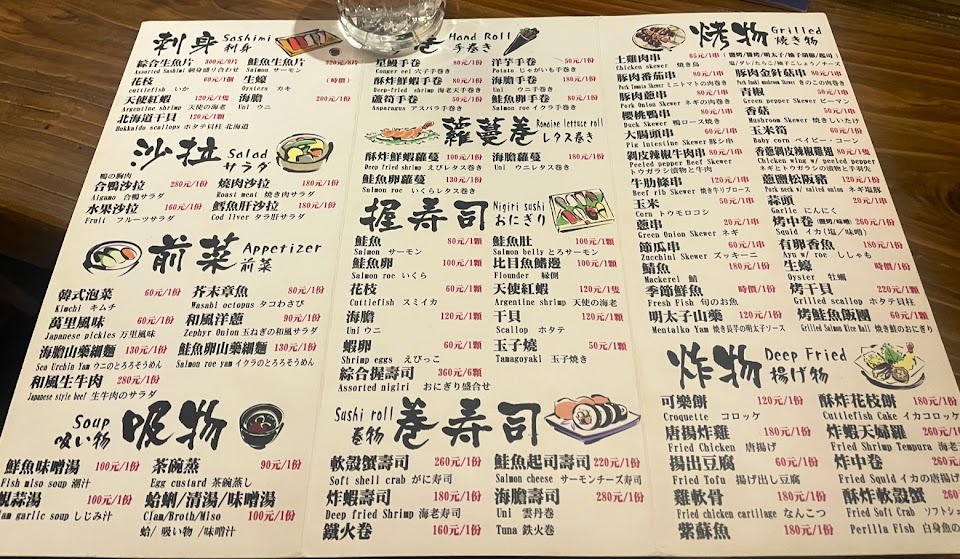 刺身 Sashimi 刺身
綜合生魚片 300元/9片
Assorted Sashimi 刺身盛り合わせ
花枝 60元/1個
cuttlefish いか
天使紅蝦 120元/1隻
Argentine shrimp 天使の海老
北海道干貝 120元/1顆
Hokkaido scallops ホタテ貝柱 北海道
鮭魚生魚片 320元/8片
Salmon サーモン
生蠔 (時價)
Oysters カキ
海膽 200元/1份
Uni ウニ
沙拉 Salad サラダ
鴨の胸肉
合鴨沙拉 280元/1份
Aigamo 合鴨サラダ
水果沙拉 160元/1份
Fruit フルーツサラダ
燒肉沙拉 180元/1份
Roast meat 焼き肉サラダ
鱈魚肝沙拉 180元/1份
Cod liver タラ肝サラダ
前菜 Appetizer 前菜
韓式泡菜 60元/1份
Kimchi キムチ
萬里風味 60元/1份
Japanese pickles 万里風味
海膽山藥細麵 130元/1份
Sea Urchin Yam ウニのとろろそうめん
和風生牛肉 280元/1份
Japanese style beef 生牛肉のサラダ
芥末章魚 80元/1份
Wasabi octopus タコわさび
和風洋蔥 90元/1份
Zephyr Onion 玉ねぎの和風サラダ
鮭魚卵山藥細麵 130元/1份
Salmon roe yam イクラのとろろそうめん
Soup 吸い物 吸物
鮮魚味噌湯 100元/1份
Fish miso soup 潮汁
蜆蒜湯 100元/1份
am garlic soup しじみ汁
茶碗蒸 90元/1份
Egg custard 茶碗蒸し
蛤蜊/清湯/味噌湯
Clam/Broth/Miso 100元/1份
蛤/ 吸い物 /味噌汁
卷 Hand Roll 手巻き
星鰻手卷 80元/1份
Conger eel 穴子手巻き
酥炸鮮蝦手卷 80元/1份
Deep-fried shrimp 海老天手巻き
蘆筍手卷 50元/1份
Asparagus アスパラ手巻き
洋芋手卷 50元/1份
Potato じゃがいも手巻き
海膽手卷 180元/1份
Uni ウニ手巻き
鮭魚卵手卷 100元/1份
Salmon roe イクラ手巻き
蘿蔓卷 Romaine lettuce roll レタス巻き
酥炸鮮蝦蘿蔓 100元/1份
Deep fried shrimp えびレタス巻き
鮭魚卵蘿蔓 130元/1份
Salmon roe いくらレタス巻き
海膽蘿蔓 180元/1份
Uni ウニレタス巻き
握寿司 Nigiri sushi おにぎり
鮭魚 80元/1顆
Salmon サーモン
鮭魚卵 100元/1顆
Salmon roe いくら
花枝 60元/1顆
Cuttlefish スミイカ
海膽 180元/1顆
Uni ウニ
蝦卵 60元/1顆
Shrimp eggs えびっこ
綜合握壽司 360元/6顆
Assorted nigiri おにぎり盛合せ
鮭魚肚 100元/1顆
Salmon belly とろサーモン
比目魚鰭邊 100元/1顆
Flounder 縁側
天使紅蝦 120元/1隻
Argentine shrimp 天使の海老
干貝 120元/1顆
Scallop ホタテ
玉子燒 50元/1顆
Tamagoyaki 玉子焼き
Sushi roll 巻物 巻寿司
軟殼蟹壽司 260元/1份
Soft shell crab がに寿司
炸蝦壽司 180元/1份
Deep fried Shrimp 海老寿司
鐵火卷 160元/1份
鮭魚起司壽司 220元/1份
Salmon cheese サーモンチーズ寿司
海膽壽司 280元/1份
Uni 雲丹巻
Tuna 鉄火巻
烤物 Grilled 焼き物
土雞肉串 65元/1串
Chicken skewer 焼き鳥
豚肉番茄串 80元/1串
Pork Tomato Skewer ミニトマトの肉巻き
豚肉蔥串 80元/1串
Pork Onion Skewer ネギの肉巻き
櫻桃鴨串 80元/1串
Duck Skewer 鴨ロース焼き
大腸頭串 60元/1串
Pig intestine Skewer 豚シロ
剝皮辣椒牛肉串 80元/1串
Peeled pepper Beef Skewer
トウガラシ漬物と牛肉
牛肋條串 120元/1串
Beef rib Skewer 焼き牛リブロース
玉米 50元/1串
Corn トウモロコシ
蔥串 60元/1串
Green Onion Skewer ネギ
節瓜串 60元/1串
Zucchini Skewer ズッキーニ
鯖魚 180元/1份
Mackerel 鯖
季節鮮魚 時價/1份
Fresh Fish 旬のお魚
明太子山藥 120元/1份
Mentaiko Yam 焼き長芋の明太子ソース
豚肉金針菇串 80元/1串
Pork Enoki mushroom Skewer きのこの肉巻き
青椒 50元/1串
Green pepper Skewer ピーマン
香菇 50元/1串
Mushroom Skewer 焼きしいたけ
玉米筍 60元/1串
Baby corn ベイビー・コーン
香蔥剝皮辣椒雞翅 80元/1隻
Chicken wing w/ peeled pepper
ネギとトウガラシ漬物の手羽先
蔥鹽松阪豬 120元/1串
Pork neck w/ salted onion ネギ塩豚
蒜頭 40元/1串
Garlic にんにく
烤中卷 (鹽烤/味噌) 260元/1份
Squid イカ(塩/味噌)
有卵香魚 180元/1份
Ayu w/ roe ししゃも
生蠔 時價/1份
Oyster 牡蠣
烤干貝 220元/1份
Grilled scallop ホタテ貝柱
烤鮭魚飯糰 60元/1顆
Grilled Salmon Rice Ball 焼き鮭のおにぎり
炸物 Deep Fried 揚げ物
可樂餅 120元/1份
Croquette コロッケ
唐揚炸雞 180元/1份
Fried Chicken 唐揚げ
揚出豆腐 60元/1份
Fried Tofu 揚げ出し豆腐
雞軟骨 180元/1份
Fried chicken cartilage なんこつ
紫蘇魚 180元/1份
酥炸花枝餅 180元/1
Cuttlefish Cake イカコロッケ
炸蝦天婦羅 260元/1
Fried Shrimp Tempura 海老
炸中卷 260元/1
Fried Squid イカの唐揚げ
酥炸軟殼蟹 260
Fried Soft Crab ソフトシェ
Perilla Fish 白身魚の